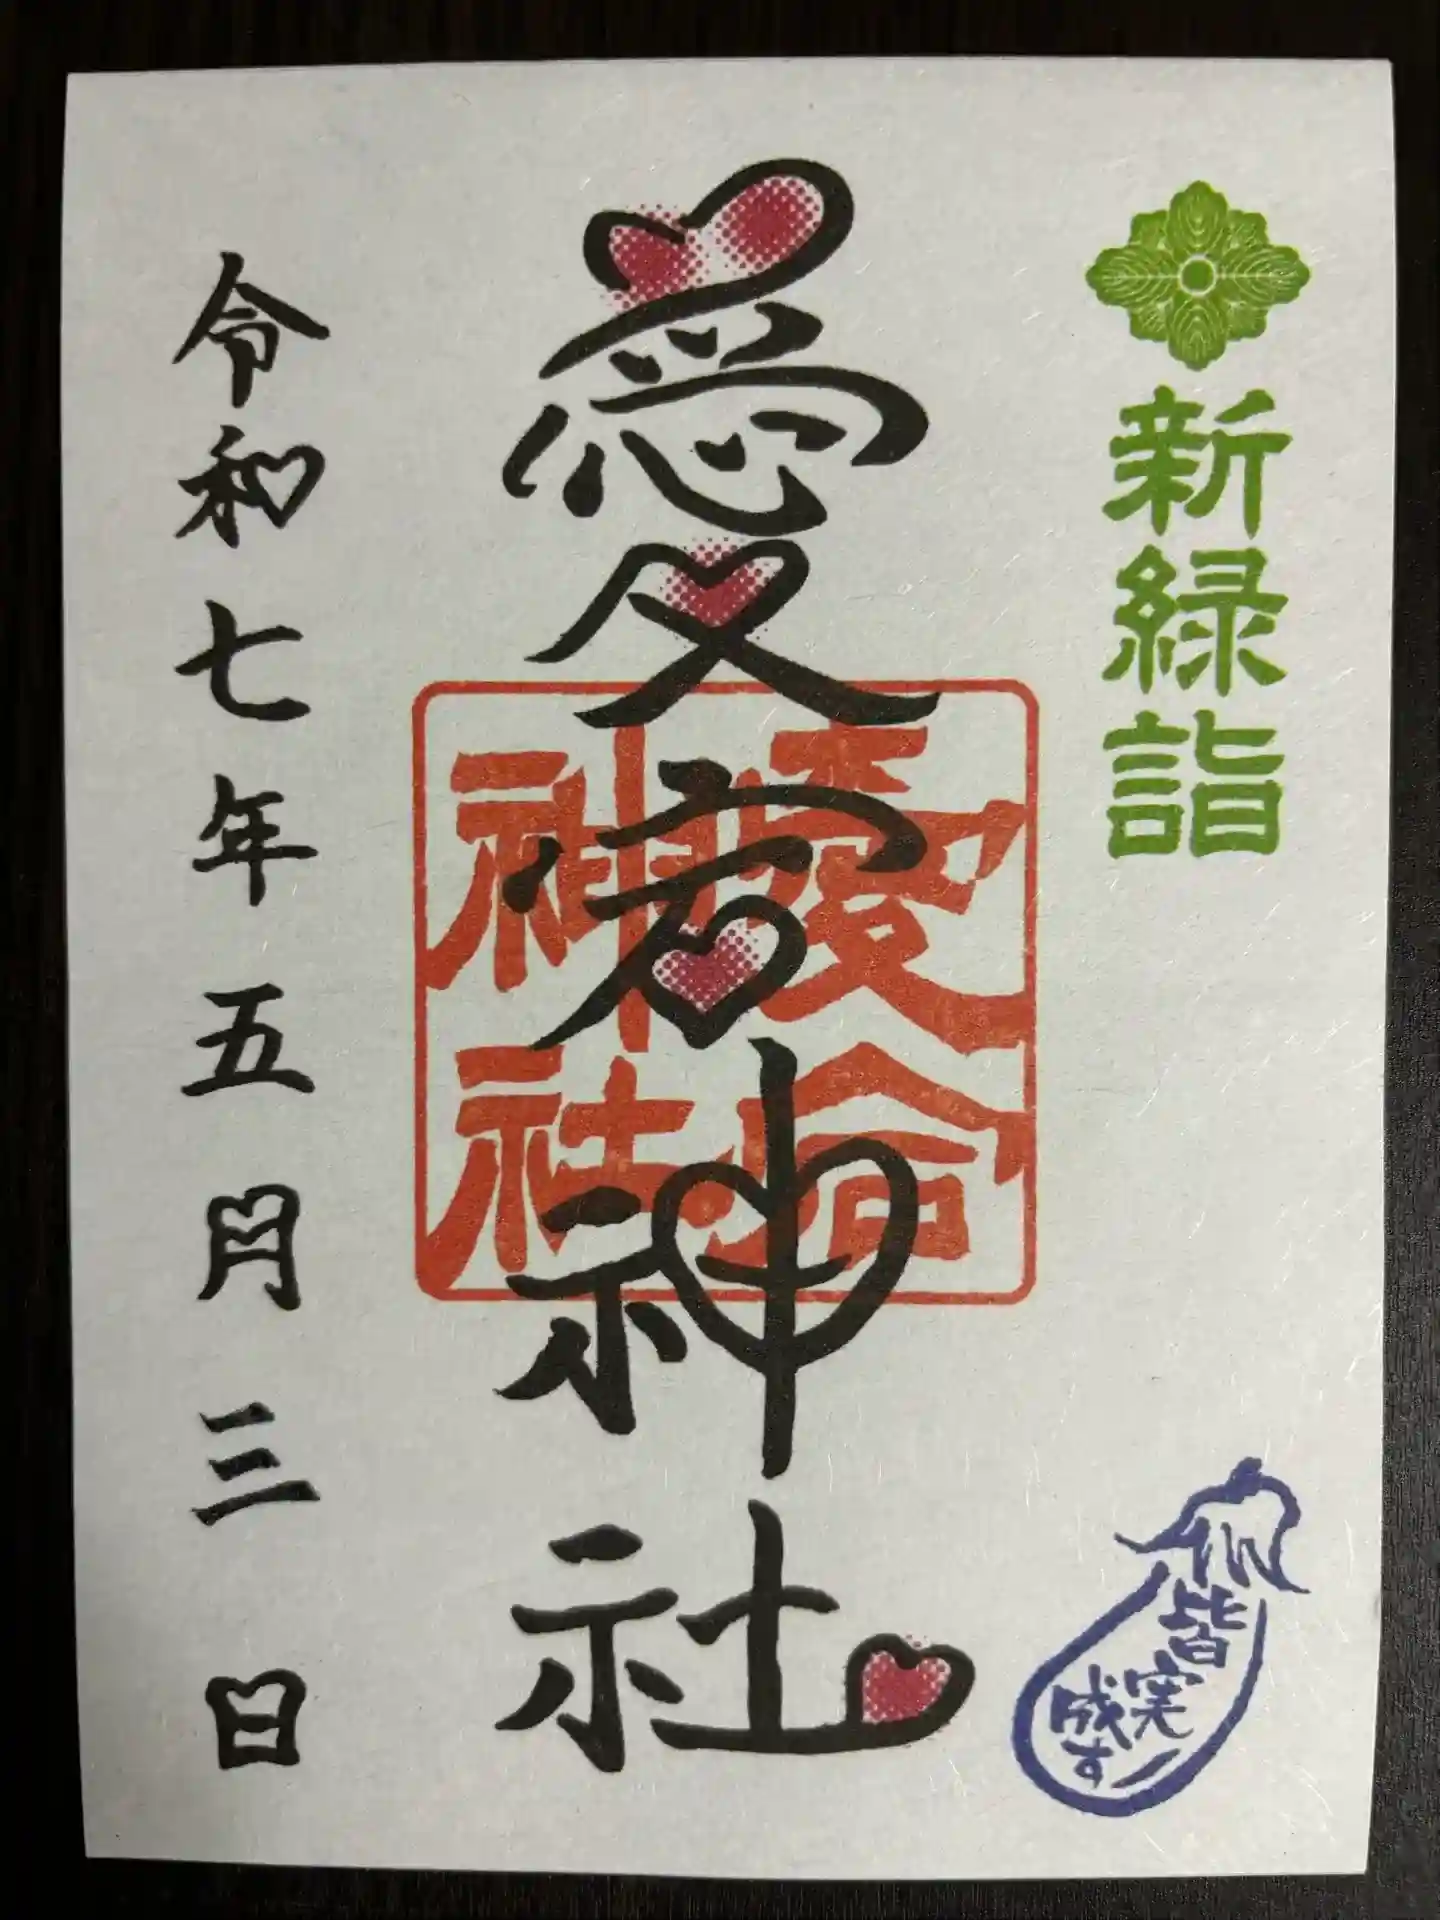 新緑詣
皆
実
成す
愛宕神社
愛宕
神社
令和七年五月三日